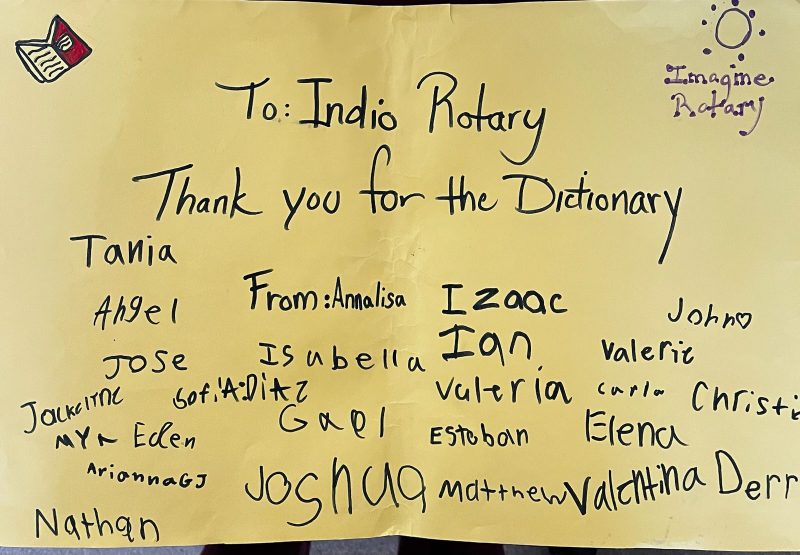 Imagine
Rotary
To: Indio Rotary
Thank you for the Dictionary
Tania
From: Annalisa Izaac
Angel John
Jose Isabella Ian Valerie
Jackeline Sofia Diaz Valeria Carla Christi
Mya Eden Gael Esteban Elena
AriannaGJ Joshua Matthew Valentina Derr
Nathan